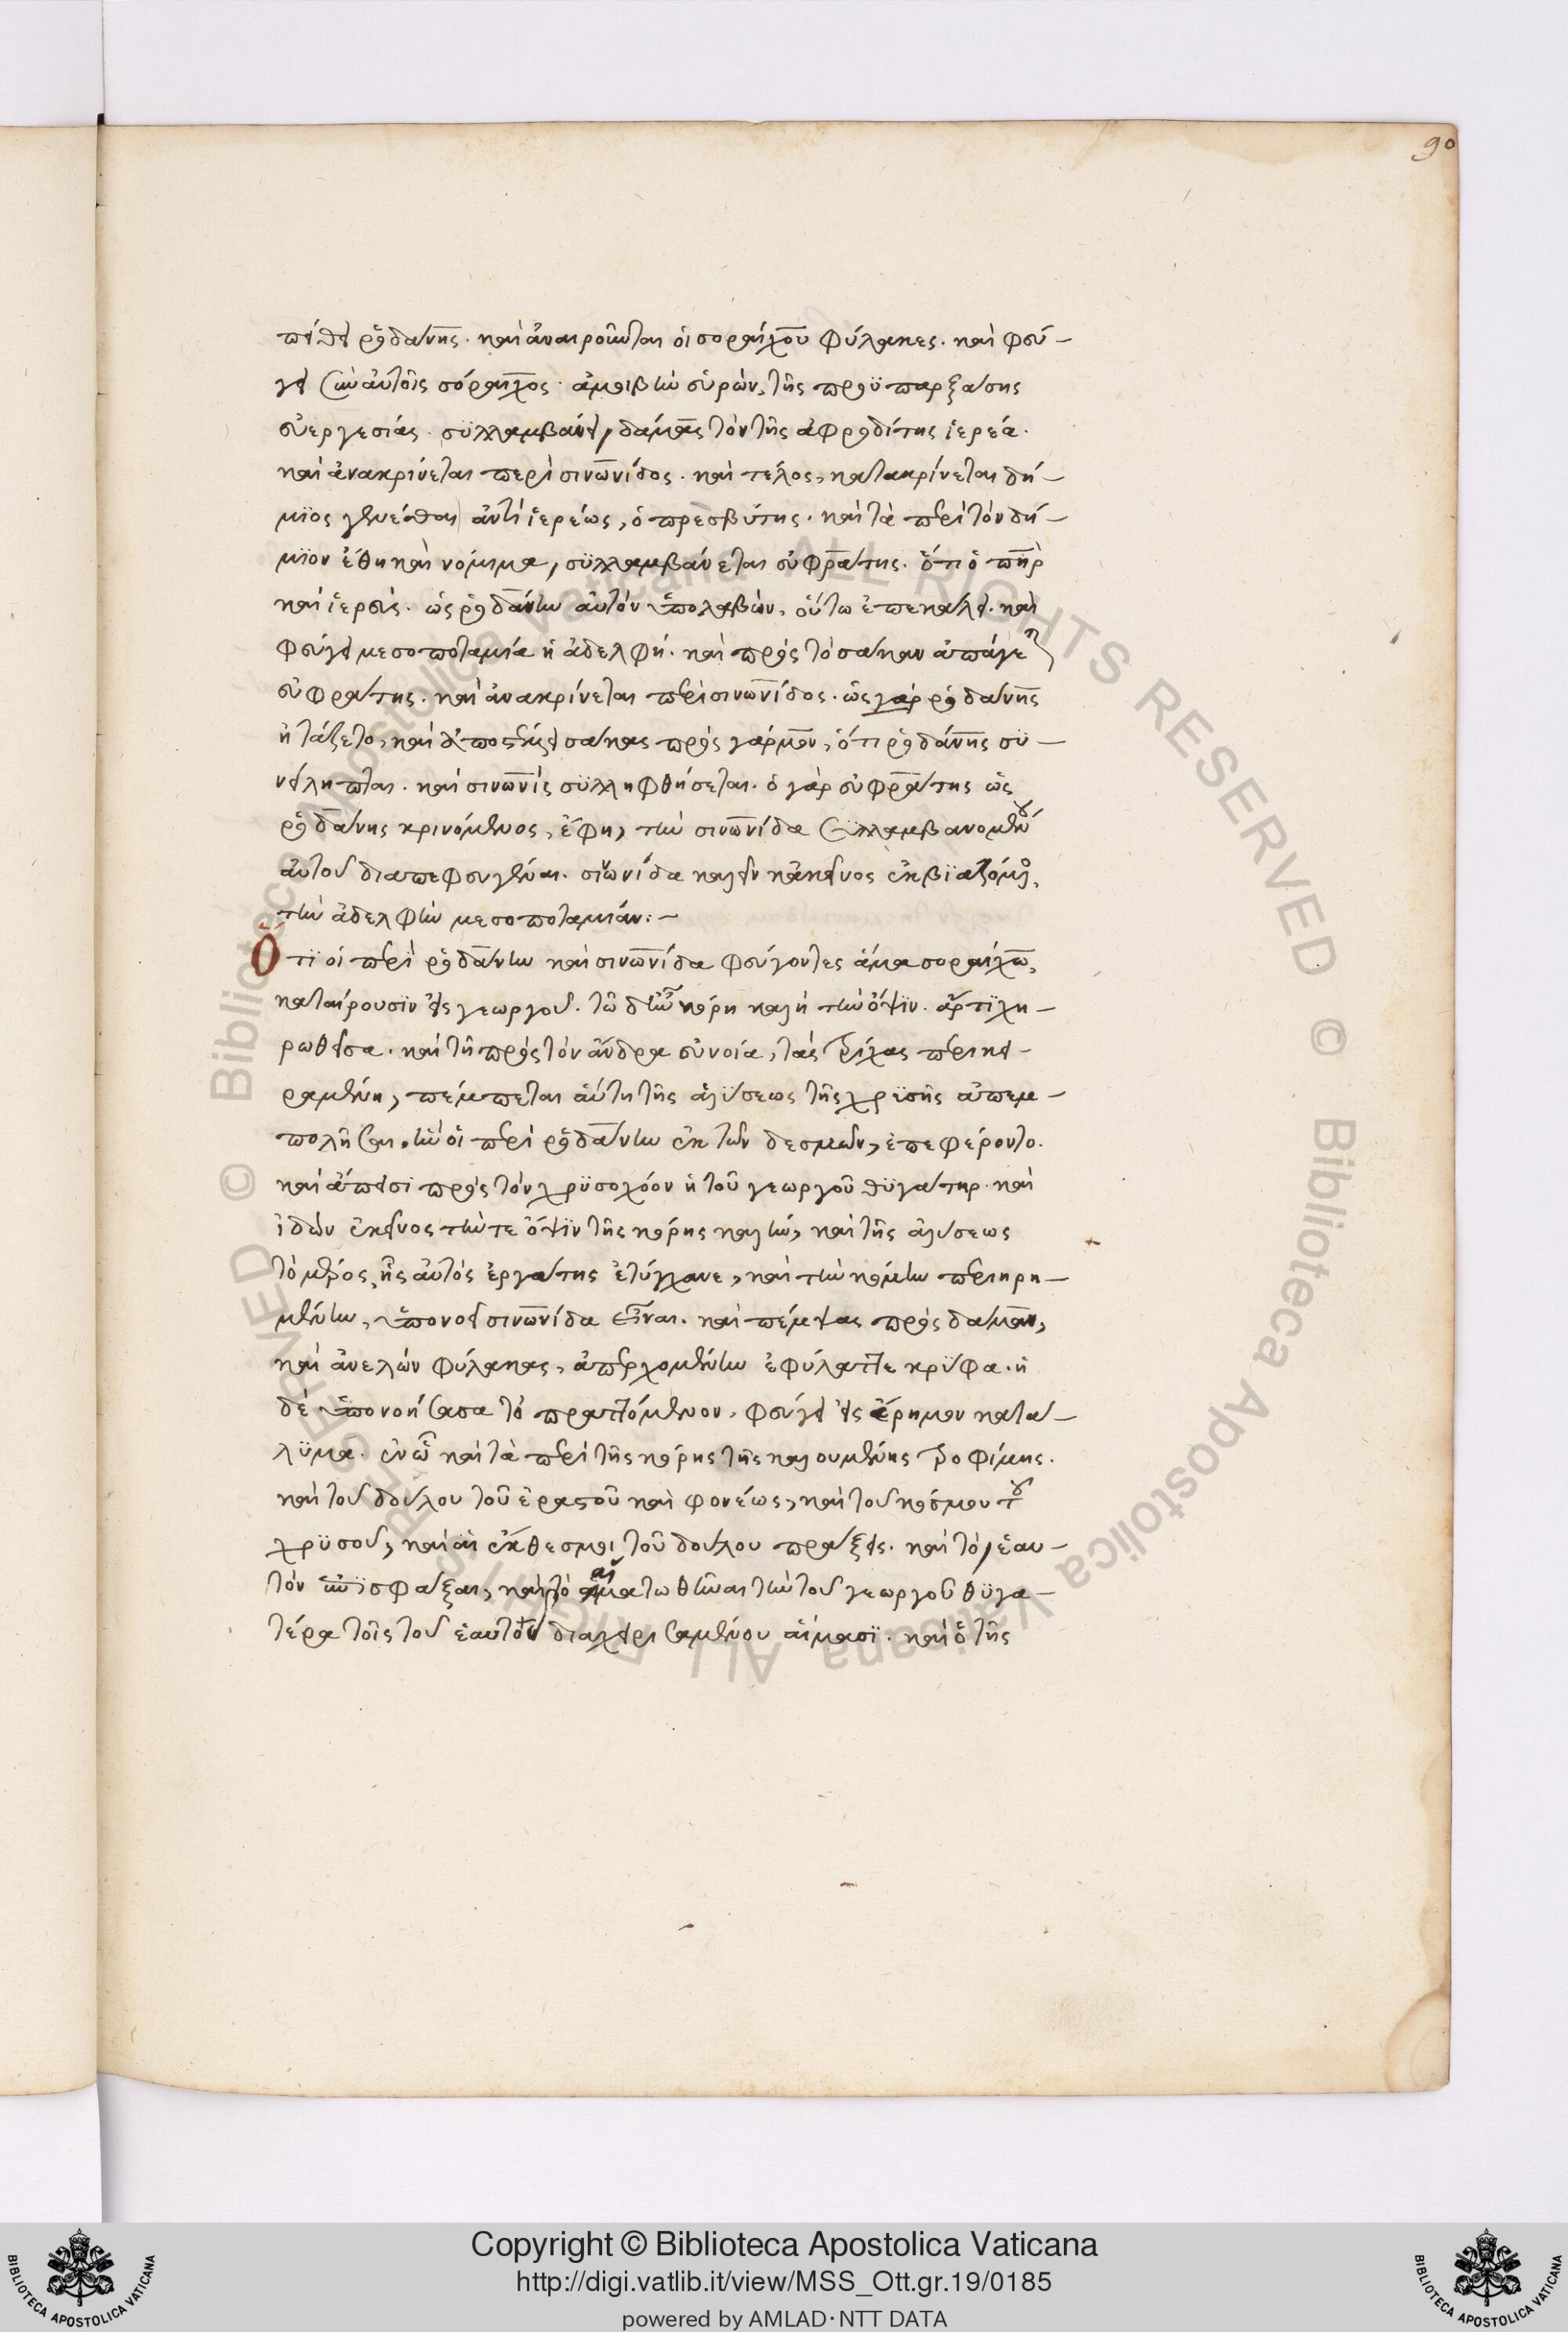 90
πείθει ῥοδάνης. καὶ ἀναιροῦνται οἱ σοραίχου φύλακες. καὶ φεύ-
γει σὺν αὐτοῖς σόραιχος. ἀμοιβὴν εὑρών, τῆς προϋπαρξάσης
εὐεργεσίας. συλλαμβάνει, δάμας τὸν τῆς ἀφροδίτης ἱερέα.
καὶ ἀνακρίνεται περὶ σινωνίδος. καὶ τέλος, κατακρίνεται δή-
μϊος γενέσθαι ἀντὶ ἱερέως, ὁ πρεσβύτης. καὶ τὰ περὶ τὸν δή-
μϊον ἔθη καὶ νόμιμα, συλλαμβάνεται εὐφράτης. ὅτι ὁ πηρ
καὶ ἱερεὺς. ὡς ῥοδάνην αὐτὸν ὑπολαβὼν, οὕτω ἐπεκάλει. καὶ
φεύγει μεσοποταμία ἡ ἀδελφή. καὶ πρὸς τὸ σάκαν ἀπάγεται
εὐφράτης. καὶ ἀνακρίνεται περὶ σινωνίδος. ὡς γὰρ ῥοδάνης
ἠτάζετο, καὶ ἀποστέλλει σάκας πρὸς γάρμον, ὅτι ῥοδάνης συ-
νείληπται. καὶ σινωνὶς συλληφθήσεται. ὁ γὰρ εὐφράτης ὡς
ῥοδάνης κρινόμενος, ἔφη, τὴν σινωνίδα συλλαμβανομένου
αὐτοῦ διαπεφευγέναι. σινωνίδα καλεῖν κἀκεῖνος ἐκβϊαζόμενος,
τὴν ἀδελφὴν μεσοποταμίαν:-
Ὅτϊ οἱ περὶ ῥοδάνην καὶ σινωνίδα φεύγοντες ἅμα σοραίχω,
καταίρουσϊν εἰς γεωργοῦ. τῶ δ' ἦν κόρη καλὴ τὴν ὄψϊν. ἄρτϊ χη-
ρωθεῖσα. καὶ τῆ πρὸς τὸν ἄνδρα εὐνοία, τὰς τρίχας περικε-
ραμένη, πέμπεται αὕτη τῆς ἁλύσεως τῆς χρϋσῆς ἀπεμ-
πολῆσαι, ἣν οἱ περὶ ῥοδάνην ἐκ τῶν δεσμῶν, ἐπεφέροντο.
καὶ ἄπεισϊ πρὸς τὸν χρϋσοχόον ἡ τοῦ γεωργοῦ θϋγάτηρ. καὶ
ἰδὼν ἐκεῖνος τήν τε ὄψϊν τῆς κόρης καλὴν, καὶ τῆς ἁλύσεως
τὸ μέρος, ἧς αὐτὸς ἐργάτης ἐτύγχανε, καὶ τὴν κόμην περιηρη-
μένην, ὑπονοεῖ σινωνίδα εἶναι. καὶ πέμψας πρὸς δάμαν,
καὶ ἀνελὼν φύλακας, ἀπερχομένην ἐφύλαττε κρύφα. ἡ
δὲ ὑπονοήσασα τὸ πραττόμενον, φεύγει εἰς ἔρημον κατά-
λϋμα. ἐν ὧ καὶ τὰ περὶ τῆς κόρης τῆς καλουμένης τροφίμης.
καὶ τοῦ δούλου τοῦ ἐραστοῦ καὶ φονέως, καὶ τοῦ κόσμου τοῦ
χρϋσοῦ, καὶ αἱ ἔκθεσμοι τοῦ δούλου πράξεις. καὶ τὸ, ἑαυ-
τὸν ἐπϊσφάξαι, καὶ τὸ αἱματωθῆναι τὴν τοῦ γεωργοῦ θϋγα-
τέρα τοῖς τοῦ ἑαυτὸν διαχειρισαμένου αἵμασϊ. καὶ ὁ τῆς
Copyright © Biblioteca Apostolica Vaticana
http://digi.vatlib.it/view/MSS_Ott.gr.19/0185
powered by AMLAD·NTT DATA